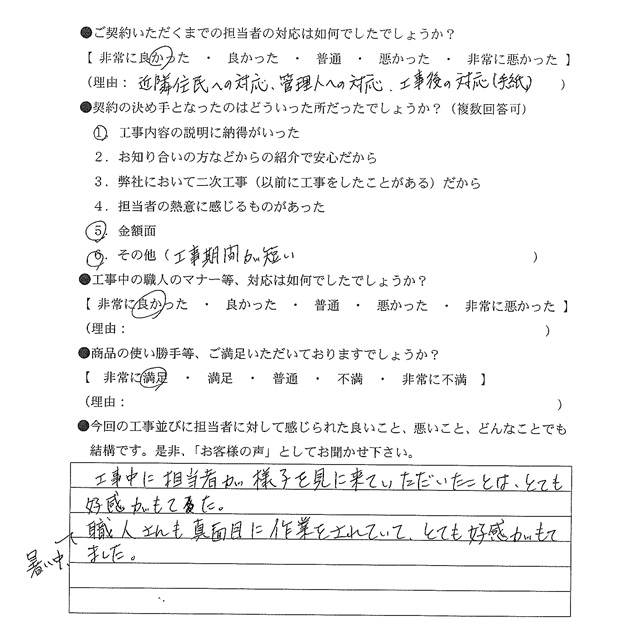 ●ご契約いただくまでの担当者の対応は如何でしたでしょうか？
【 非常に良かった ・ 良かった ・ 普通 ・ 悪かった ・ 非常に悪かった 】
（理由： 近隣住民への対応、管理人への対応、工事後の対応(手紙) ）
●契約の決め手となったのはどういった所だったでしょうか？（複数回答可）
１．工事内容の説明に納得がいった
２．お知り合いの方などからの紹介で安心だから
３．弊社において二次工事（以前に工事をしたことがある）だから
４．担当者の熱意に感じるものがあった
５．金額面
６．その他（ 工事期間が短い ）
●工事中の職人のマナー等、対応は如何でしたでしょうか？
【 非常に良かった ・ 良かった ・ 普通 ・ 悪かった ・ 非常に悪かった 】
（理由： ）
●商品の使い勝手等、ご満足いただいておりますでしょうか？
【 非常に満足 ・ 満足 ・ 普通 ・ 不満 ・ 非常に不満 】
（理由： ）
●今回の工事並びに担当者に対して感じられた良いこと、悪いこと、どんなことでも
結構です。是非、「お客様の声」としてお聞かせ下さい。
工事中に担当者が様子を見に来ていただいたことは、とても
好感がもてた。
暑い中、職人さんも真面目に作業をされていて、とても好感がもて
ました。